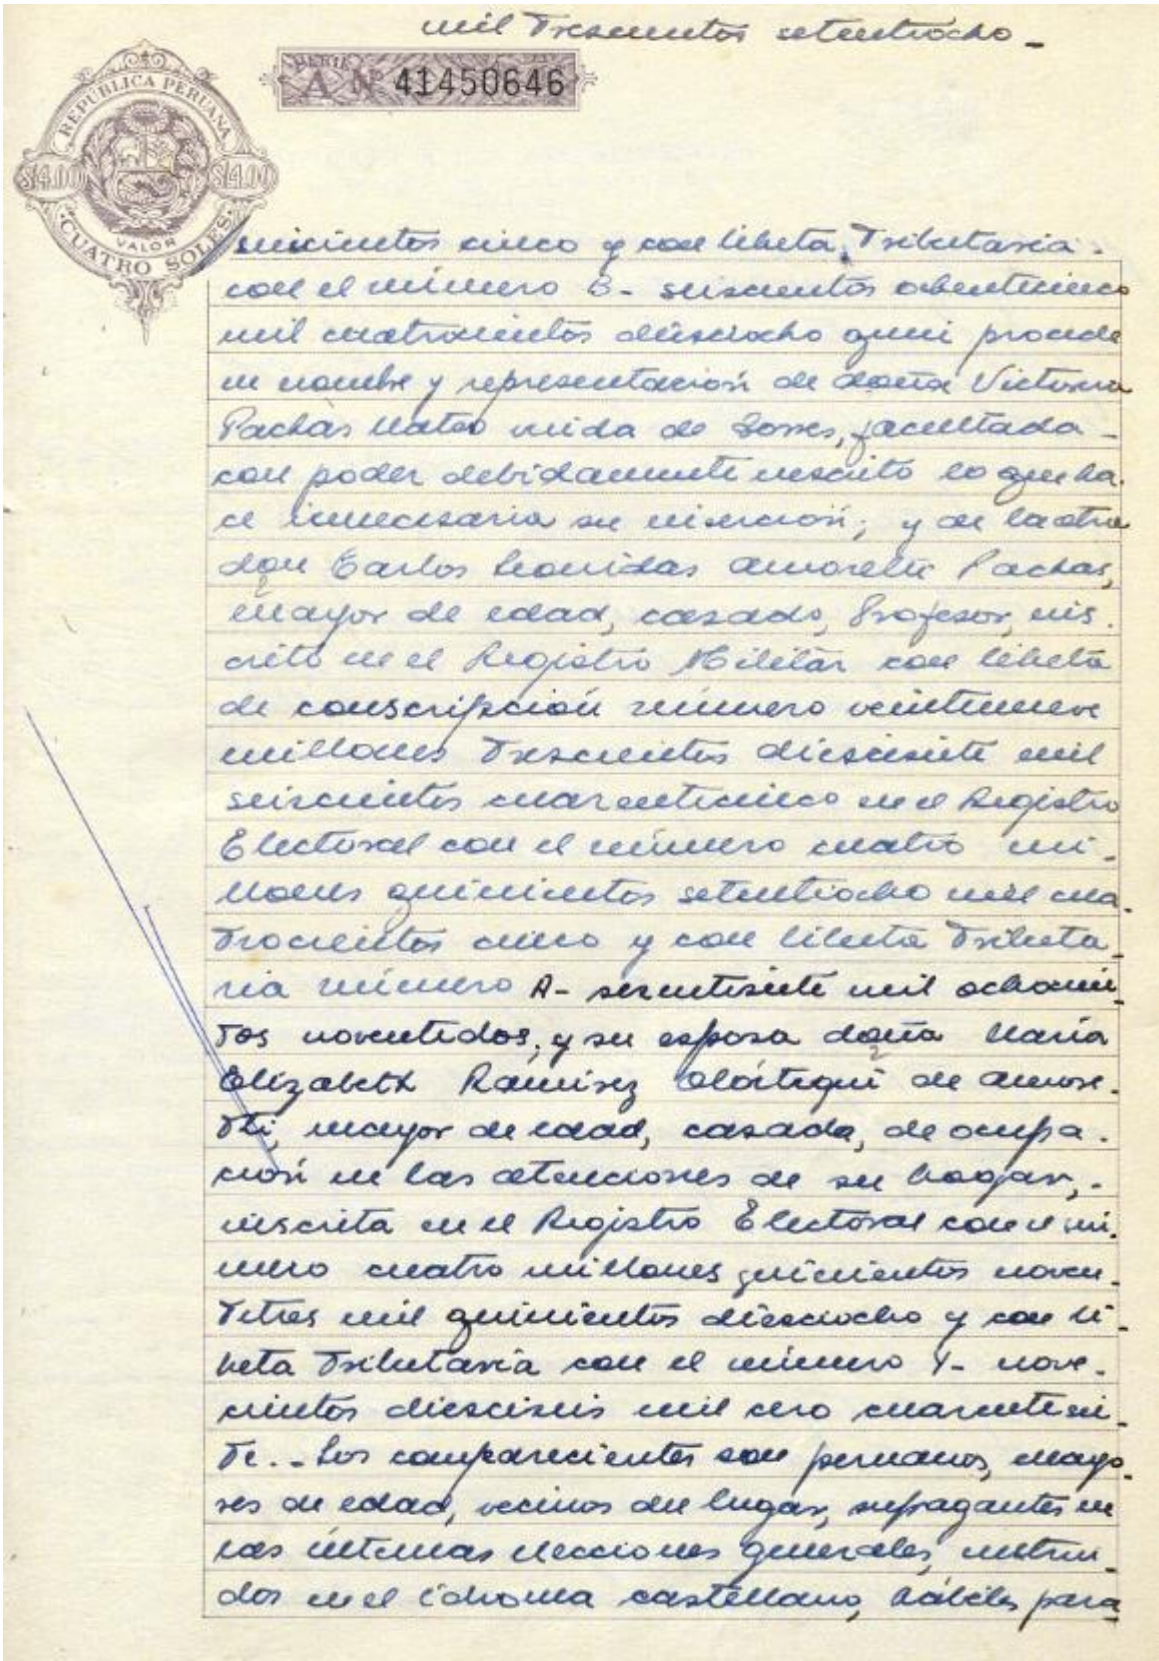 mil Trescientos setentiocho -
SERIE
A Nº 41450646
REPUBLICA PERUANA
S/4.00 S/4.00
VALOR
CUATRO SOLES
seiscientos cinco y con libreta Tributaria.
con el número 6- seiscientos ochenticinco
mil cuatrocientos dieciocho quien procede
en nombre y representación de doña Victoria
Pachas Mateo viuda de Torres, facultada -
con poder debidamente inscrito lo que ha.
ce innecesaria su inserción; y de la otra
don Carlos Leonidas Amoretti Pachas,
mayor de edad, casado, Profesor, ins.
crito en el Registro Militar con libreta
de conscripción número veintinueve
millones Trescientos diecisiete mil
seiscientos cuarenticinco en el Registro
Electoral con el número cuatro mi.
llones quinientos setentiocho mil cua.
Trocientos cinco y con libreta Tributa
ria número A- sesentisiete mil ochocien.
Tos noventidos, y su esposa doña María
Elizabeth Ramirez Olórtegui de Amore.
Tti, mayor de edad, casada, de ocupa.
ción en las atenciones de su hogar, -
inscrita en el Registro Electoral con el nú.
mero cuatro millones quinientos noven.
Titres mil quinientos dieciocho y con li.
breta Tributaria con el número Y- nove.
cientos dieciseis mil cero cuarentisie.
Te. - Los comparecientes son peruanos, mayo.
res de edad, vecinos del lugar, sufragantes en
las últimas elecciones generales, instrui.
dos en el idioma castellano, hábiles para